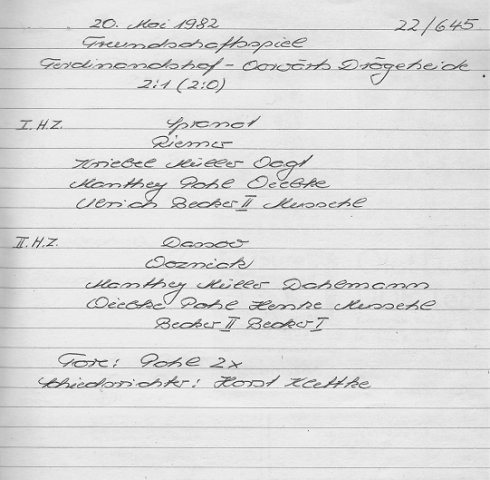 20. Mai 1982 22/645
Freundschaftsspiel
Ferdinandshof - Vorwärts Drögeheide
2:1 (2:0)
I. H.Z.
Riemer
Kriebel Müller Vogt
Manthey Pohl Vielske
Ulrich Becker II Muschel
II. H.Z. Danow
Woznick
Manthey Müller Dahlmann
Pohl Henke Muschel
Becker II Becker I
Tore: Pohl 2x
Schiedsrichter: Horst Klettke